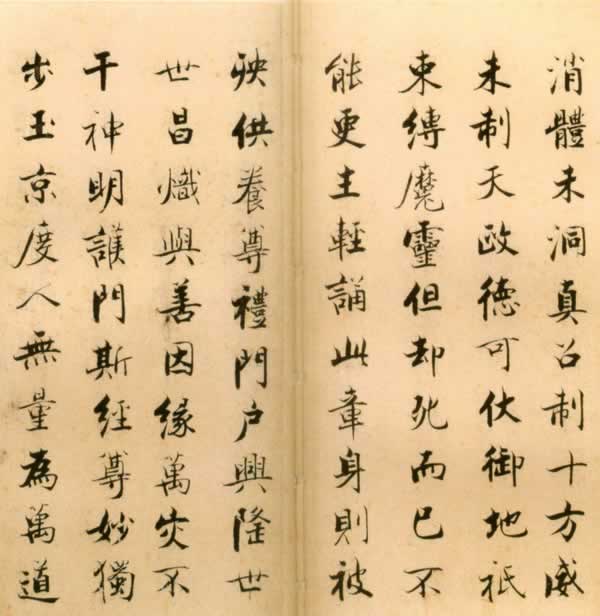 消體未洞真召制十方威
未制天政德可伏御地祇
束縛魔靈但却死而已不
能更主輕誦此章身則被
殃供養尊禮門户興隆世
世昌熾與善因緣萬灾不
干神明護門斯經尊妙獨
步玉京度人無量為萬道